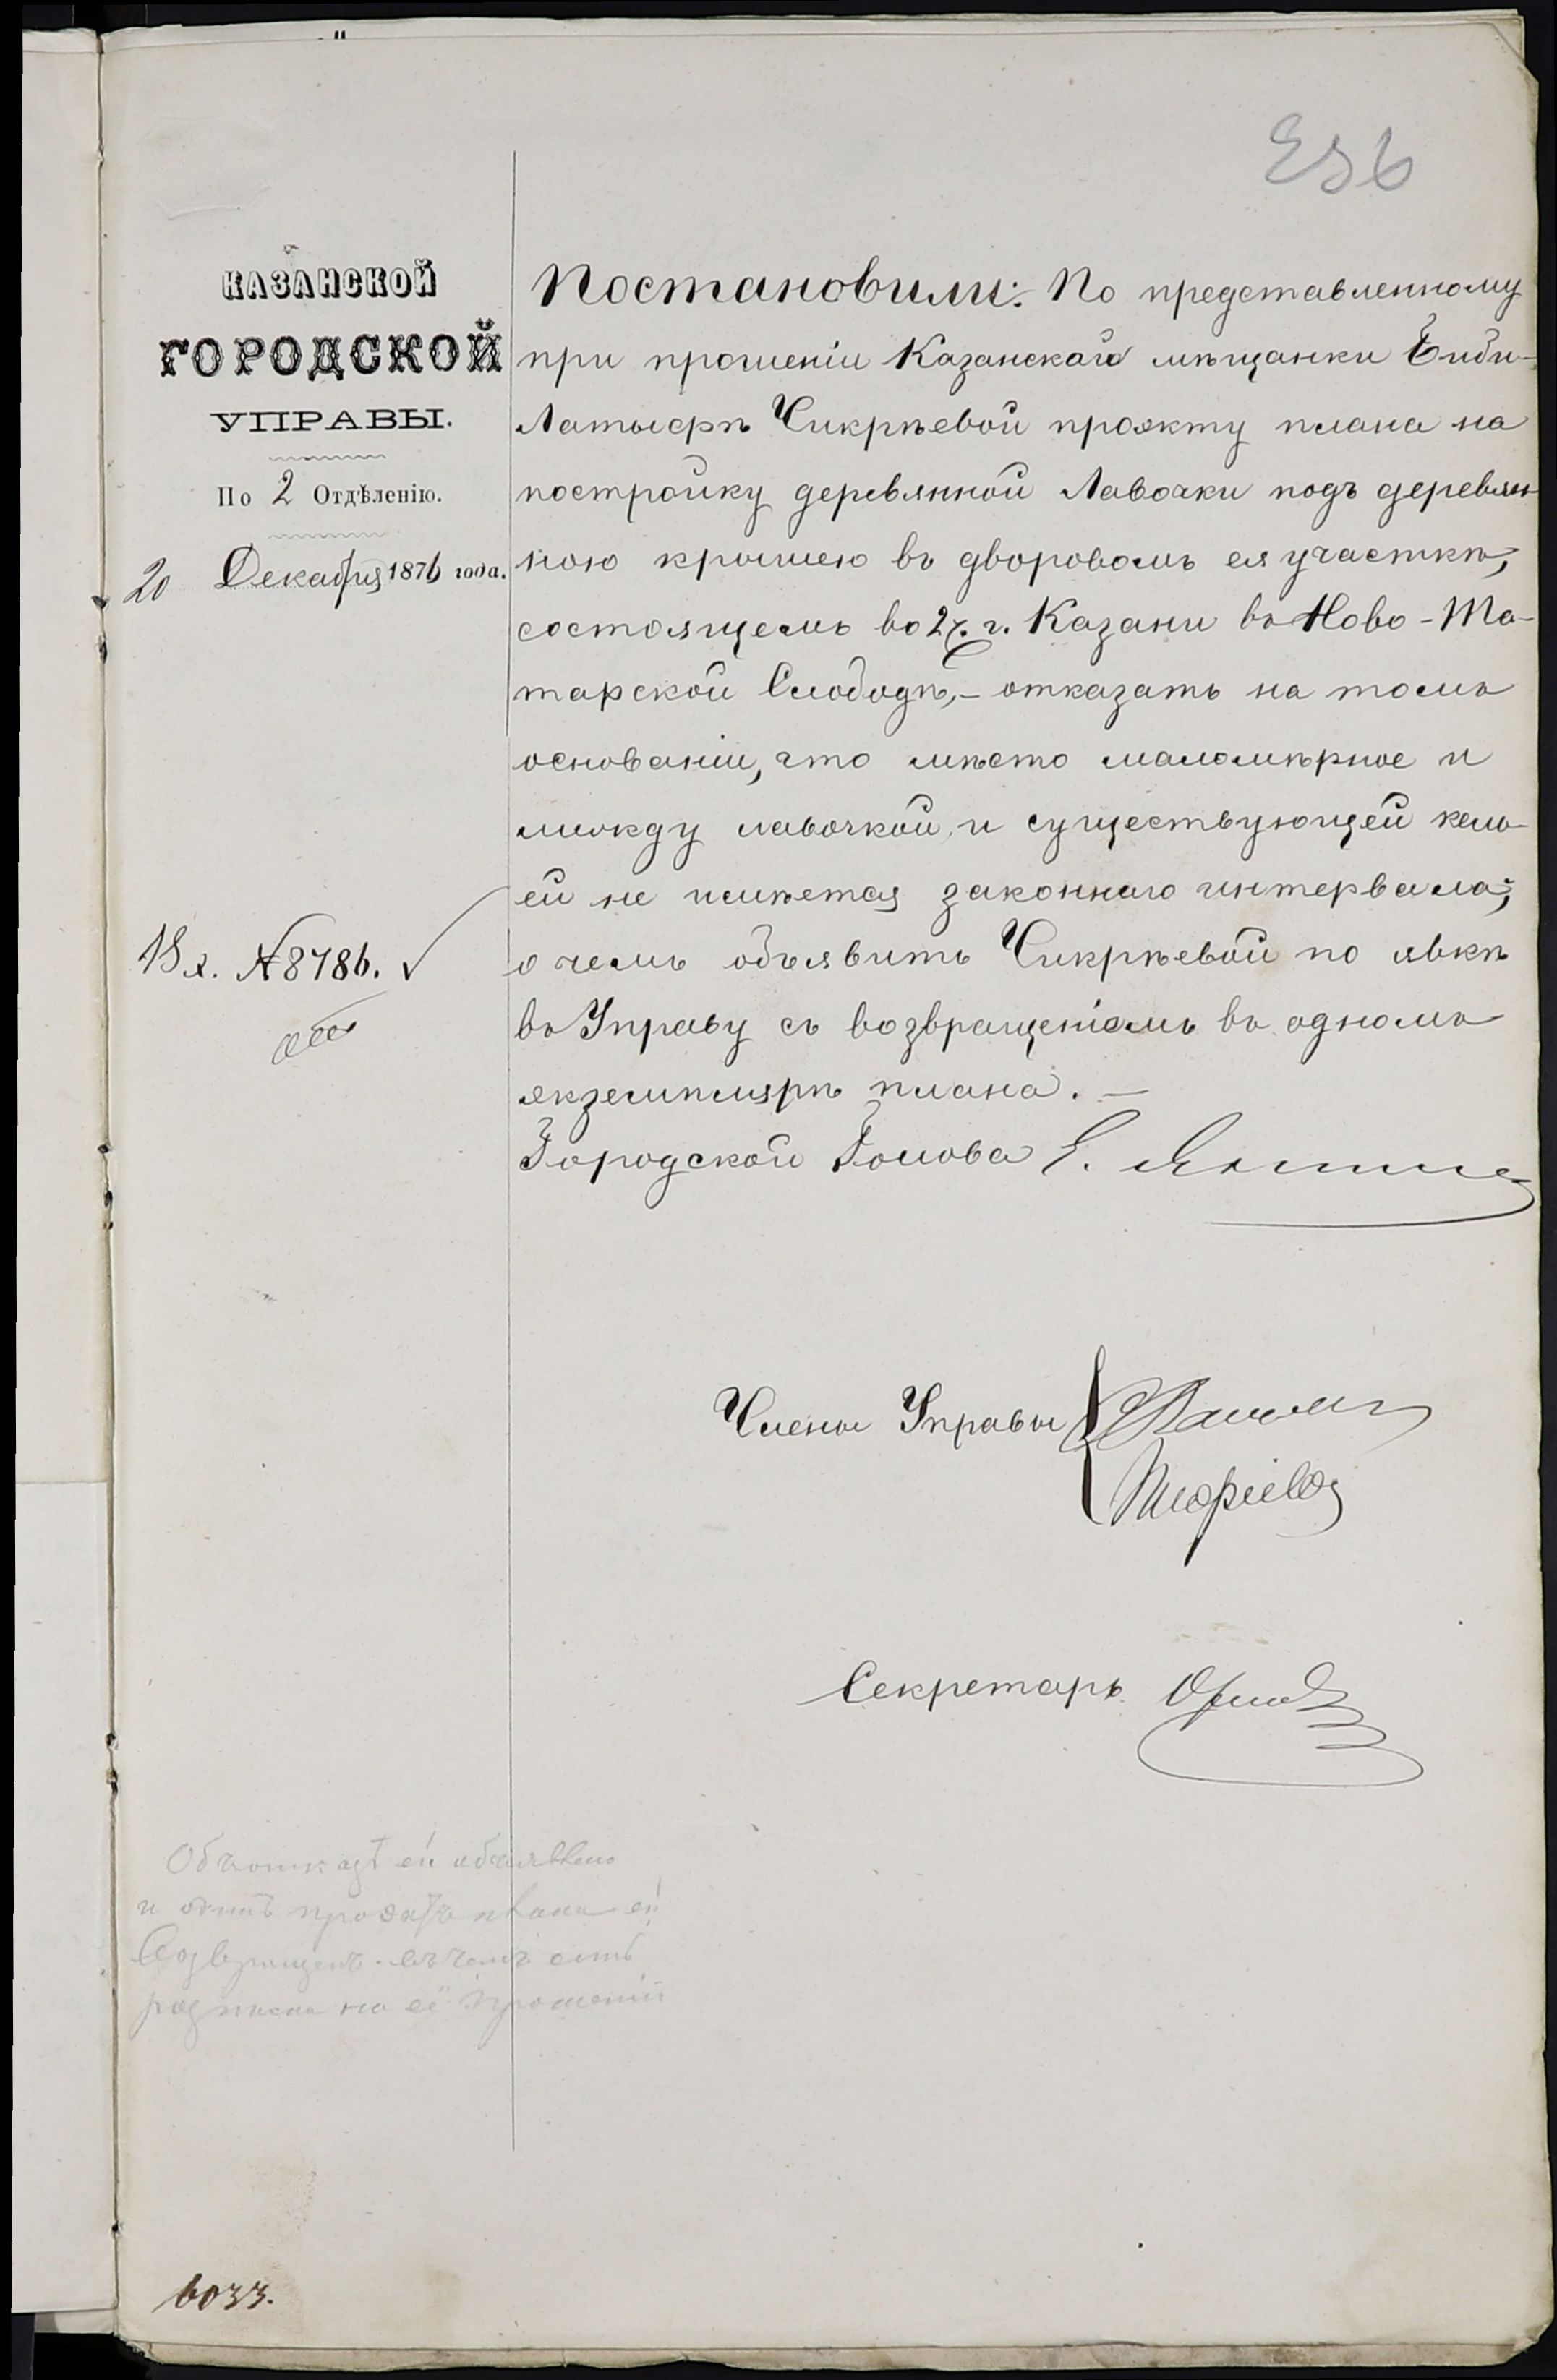 236
КАЗАНСКОЙ
ГОРОДСКОЙ
УПРАВЫ.
По 2 Отдѣленію.
20 Декабря 1876 года.
18 д. № 8786.
Постановили: По представленному
при прошеніи Казанской мѣщанки Биби-
Латыфѣ Чикрѣевой проэкту плана на
постройку деревянной Лавочки подъ деревян-
ною крышею въ дворовомъ ея участкѣ,
состоящемъ во 2 ч. г. Казани въ Ново-Та-
тарской Слободѣ, - отказать на томъ
основаніи, что мѣсто маломѣрное и
между лавочкой и существующей кель-
ей не имѣется законнаго интервала;
о чемъ объявить Чикрѣевой по явкѣ
въ Управу съ возвращеніемъ въ одномъ
экземплярѣ плана. —
Городской Голова Е. Янишъ
Члены Управы
Секретарь
Объ отказѣ ей объявлено
и одинъ плана ей
возвращенъ въ чемъ есть
росписка на её прошеніи
6033.